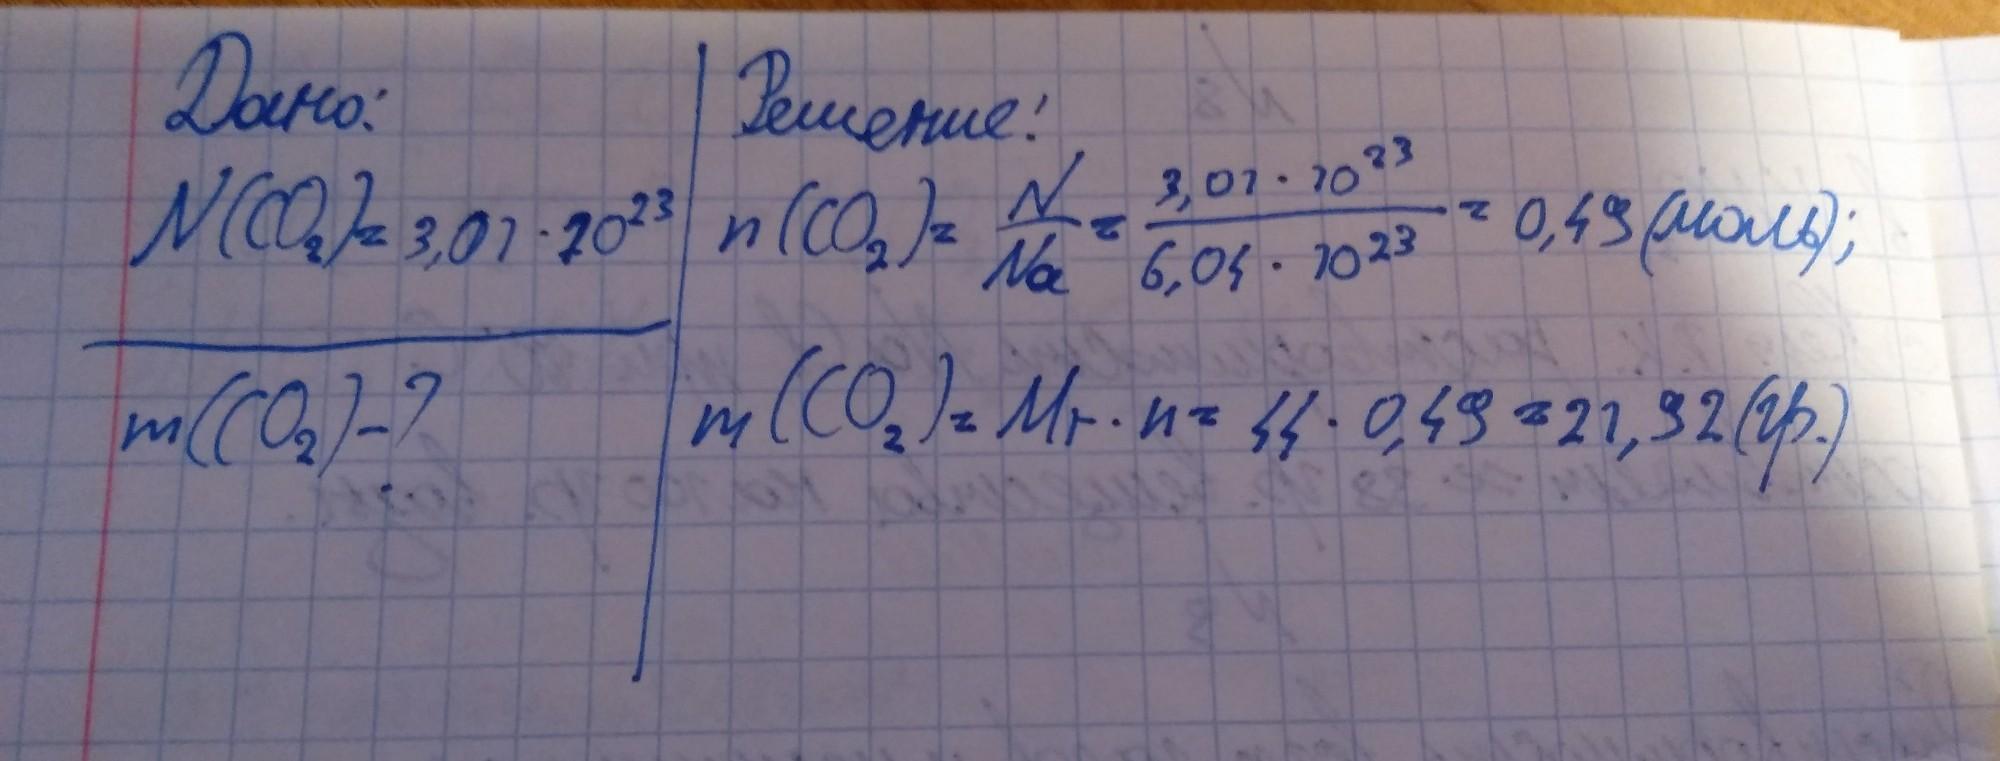 Дано:
N(CO₂)=3,01·10²³
m(CO₂)-?
Решение:
n(CO₂)= N/Na = 3,01·10²³/6,04·10²³ = 0,49 (моль);
m(CO₂)= Mr·n= 44·0,49=21,92(гр.)